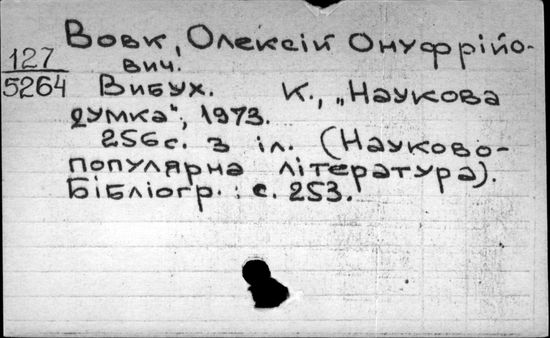 Вовк, Олексій Онуфрійо-
127 вич.
5264 Вибух. К., „Наукова
думка", 1973.
256с. з іл. (Науково-
популярна література).
Бібліогр.: с. 253.